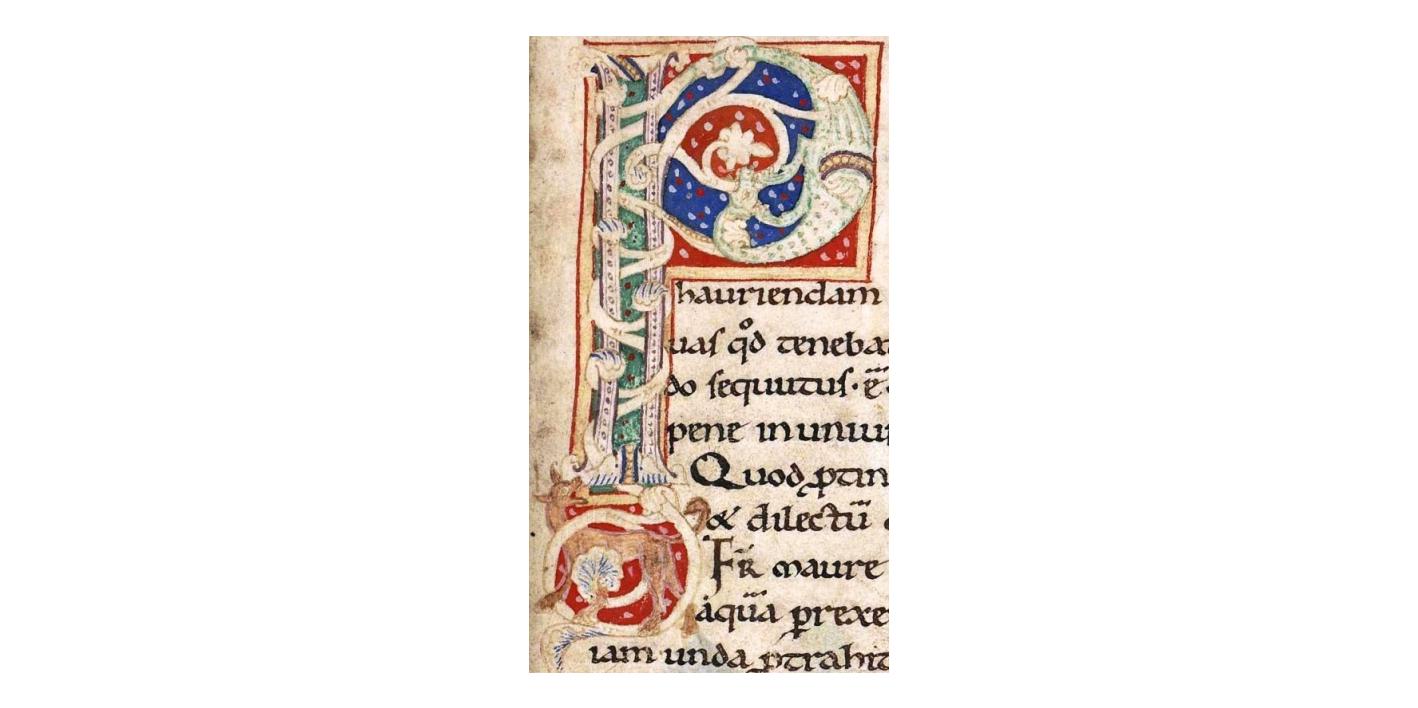 P
hauriendam
uas qđ teneba
do sequutus· e
pene inuniu
Quod ꝑtin
& dilectū
Fr̄ maure
aqua ꝑrexe
iam unda ꝓtrahit